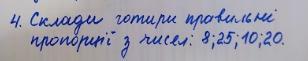 4. Склади чотири правильні
пропорції з чисел: 8; 25; 10; 20.